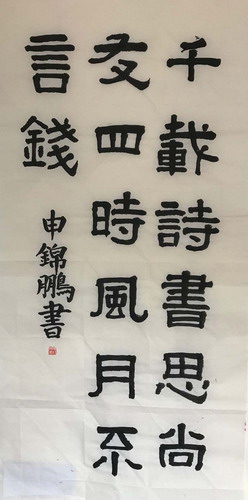 千載詩書思尚
友四時風月不
言錢
申錦鵬書